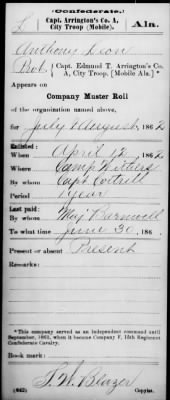 (Confederate.)
Capt. Arrington's Co. A,
City Troop (Mobile). Aln.
Anthony Leon
Capt. Edmund T. Arrington's Co.
A, City Troop, (Mobile Ala.)*
Appears on
Company Muster Roll
of the organization named above,
for July & August, 1862
Enlisted:
When April 12, 1862
Where Camp Withers
By whom Capt Cottrill
Period 1 year
Last paid:
By whom Maj Barnwell
To what time June 30, 186
Present or absent Present
*This company served as an independent command until
September, 1863, when it became Company F, 15th Regiment
Confederate Cavalry.
Book mark:
(642) Copyist.